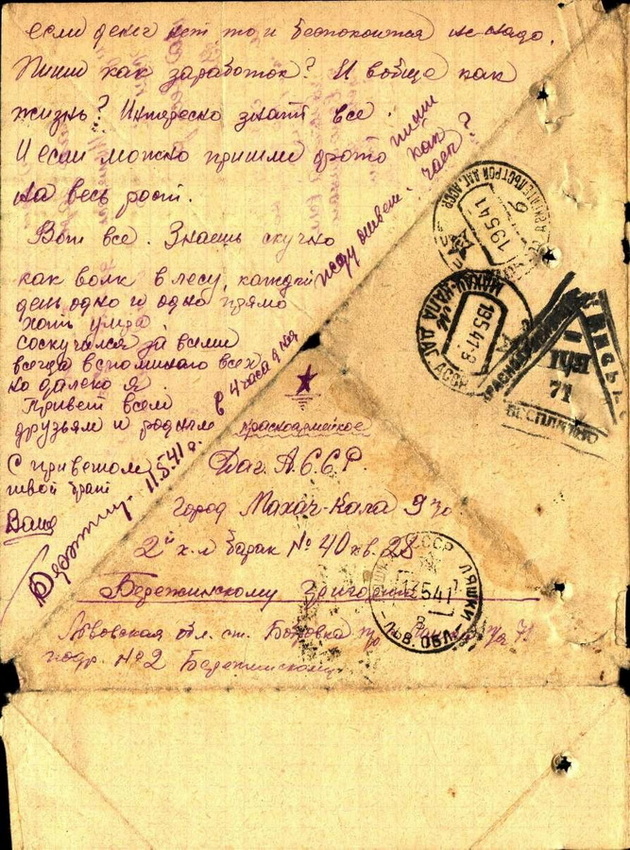 если денег нет то и беспокоится не надо.
Пиши как заработок? И вобще как
жизнь? Интересно знать все.
И если можно пришли фото
на весь рост.
пиши как
часы?
Вот все. Знаешь скучно
как волк в лесу, каждый
день одно и одно прямо
хоть умра
соскучился за всеми
всегда вспоминаю всех
но далеко я.
Привет всем
друзьям и родным
жду ответ.
в 4 часа дня
С приветом
твой брат
Ваш
11.5.41 г.
красноармейское
Даг. А.С.С.Р.
город Махач-Кала 9
2й х.л барак № 40 кв. 28
Бережинскому Григорию
Львовская обл. ст. Боховка п/о 71
подр. №2 Бережинскому
МАХАЧ-КАЛА ДАГ. АССР
19 5 41
МАХАЧ-КАЛА ДАГ. АССР
19 5 41-8
КРАСНОАРМЕЙСКОЕ
ПИСЬМО
71
БЕСПЛАТНО
ЛЯШКИ
5 41
ЛЬВ. ОБЛ.